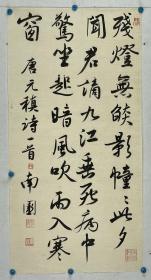 残燈無燄影幢幢此夕
聞君謫九江垂死病中
驚坐起暗風吹雨入寒
窗
唐元稹詩一首 南園